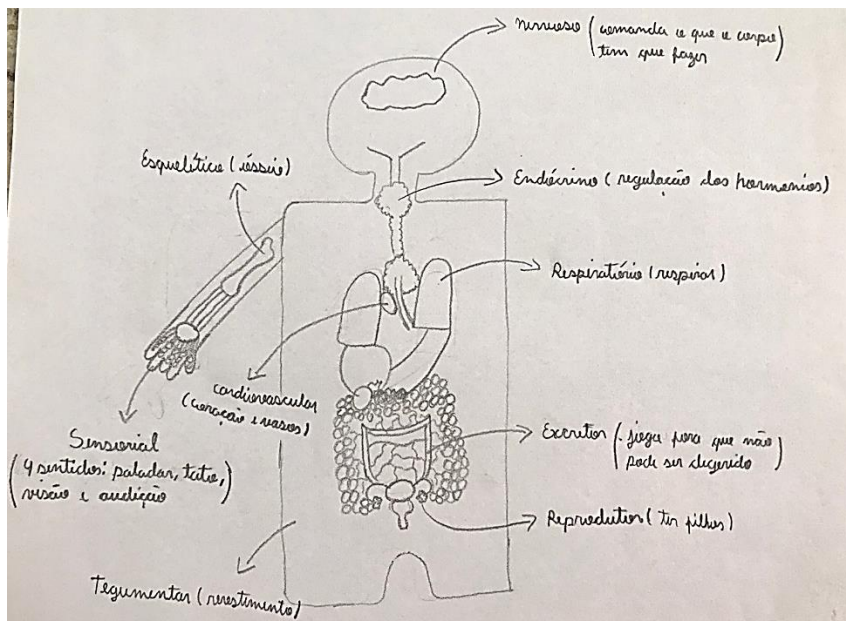 nervoso (comanda o que o corpo)
tem que fazer
Esquelético (ósseo)
Endócrino (regulação dos hormonios)
Respiratório (respirar)
cardiovascular
(coração e vasos)
Sensorial
(4 sentidos: paladar, tato,
visão e audição)
Excretor (joga fora que não
pode ser digerido)
Reprodutor (ter filhos)
Tegumentar (revestimento)